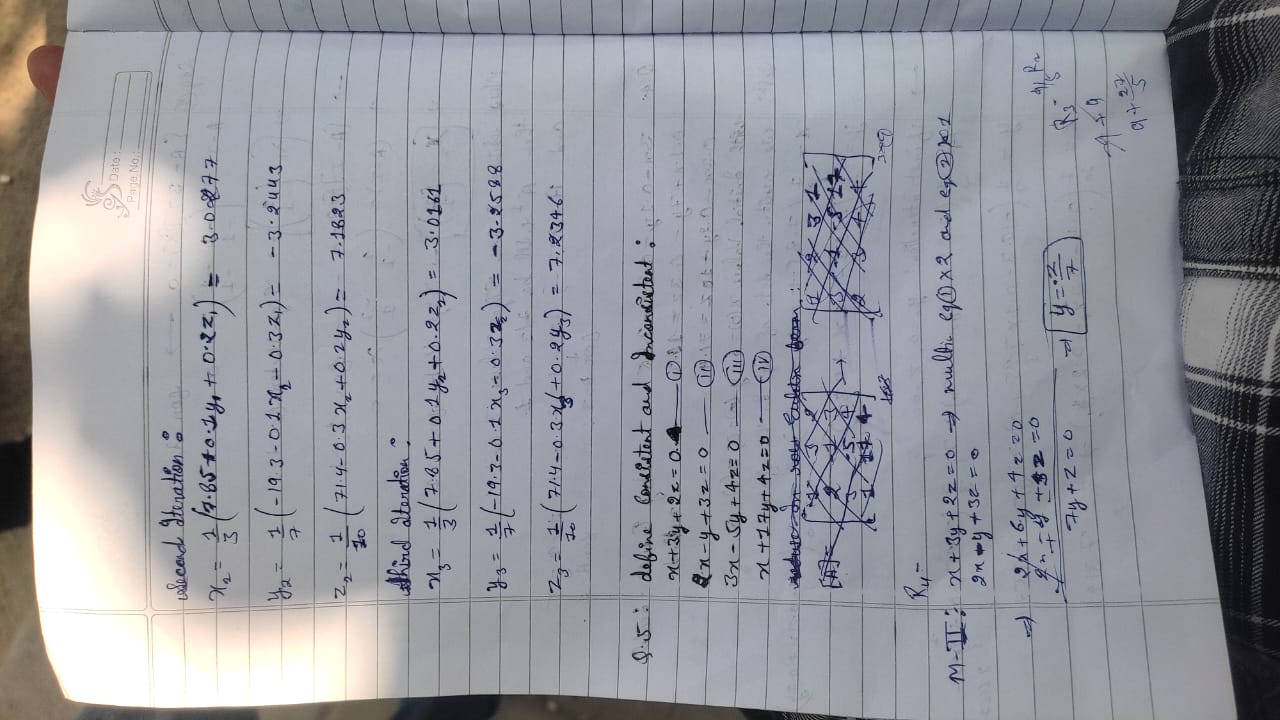 Date :
Page No.:
Second Iteration :
x₂ = 1/3 (7.85 + 0.1y₁ + 0.2z₁) = 3.0277
y₂ = 1/7 (-19.3 - 0.1x₂ - 0.3z₁) = -3.2443
z₂ = 1/10 (71.4 - 0.3x₂ + 0.2y₂) = 7.1823
third Iteration :
x₃ = 1/3 (7.85 + 0.1y₂ + 0.2z₂) = 3.0161
y₃ = 1/7 (-19.3 - 0.1x₃ - 0.3z₂) = -3.2588
z₃ = 1/10 (71.4 - 0.3x₃ + 0.2y₃) = 7.2346
Q.5: define Consistent and Inconsistent :
x + 3y + 2z = 0 — (I)
2x - y + 3z = 0 — (II)
3x - 5y + 4z = 0 — (III)
x + 17y + 4z = 0 — (IV)
R₄ -
M-II: x + 3y + 2z = 0 ⇒ multi. eq (1) × 2 and eq (2) × 1
2x - y + 3z = 0
⇒ 2x + 6y + 4z = 0
7y + z = 0 ⇒ y = -z/7
R₃ -